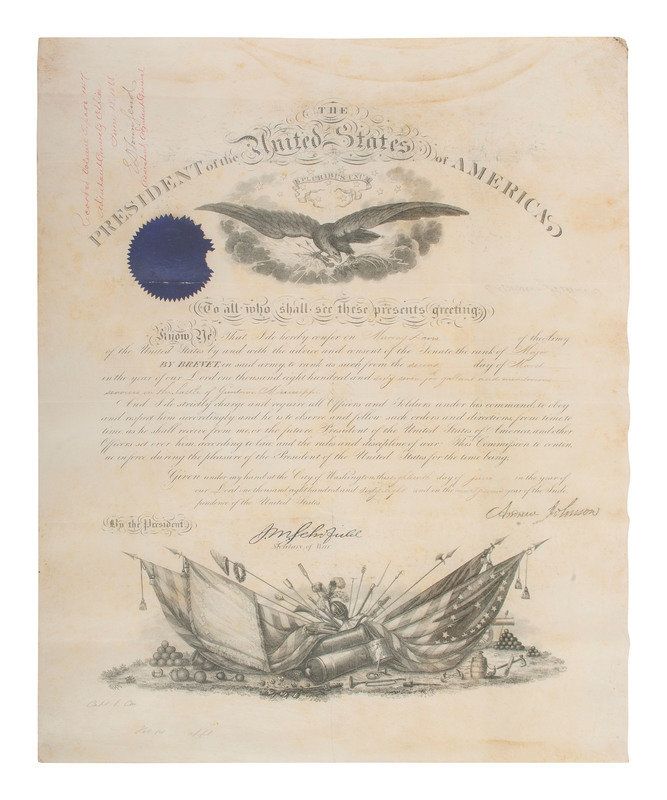 THE
United States
PRESIDENT of the of AMERICA,
E PLURIBUS UNUM
To all who shall see these presents greeting:
Know Ye, That I do hereby confer on of the Army
of the United States by and with the advice and consent of the Senate the rank of Major
BY BREVET, in said army to rank as such from the second day of March
in the year of our Lord one thousand eight hundred and sixty seven for gallant and meritorious
services in the battle of Mississippi
And I do strictly charge and require all Officers and Soldiers under his command, to obey
and respect him accordingly: and he is to observe and follow such orders and directions, from time to
time, as he shall receive from me, or the future President of the United States of America, and other
Officers set over him, according to law, and the rules and discipline of war. This Commission to contin
ue in force during the pleasure of the President of the United States for the time being.
Given under my hand at the City of Washington, this day of June in the year of
our Lord one thousand eight hundred and sixty eight and in the year of the Inde
pendence of the United States.
Andrew Johnson
By the President
J M Schofield
Secretary of War